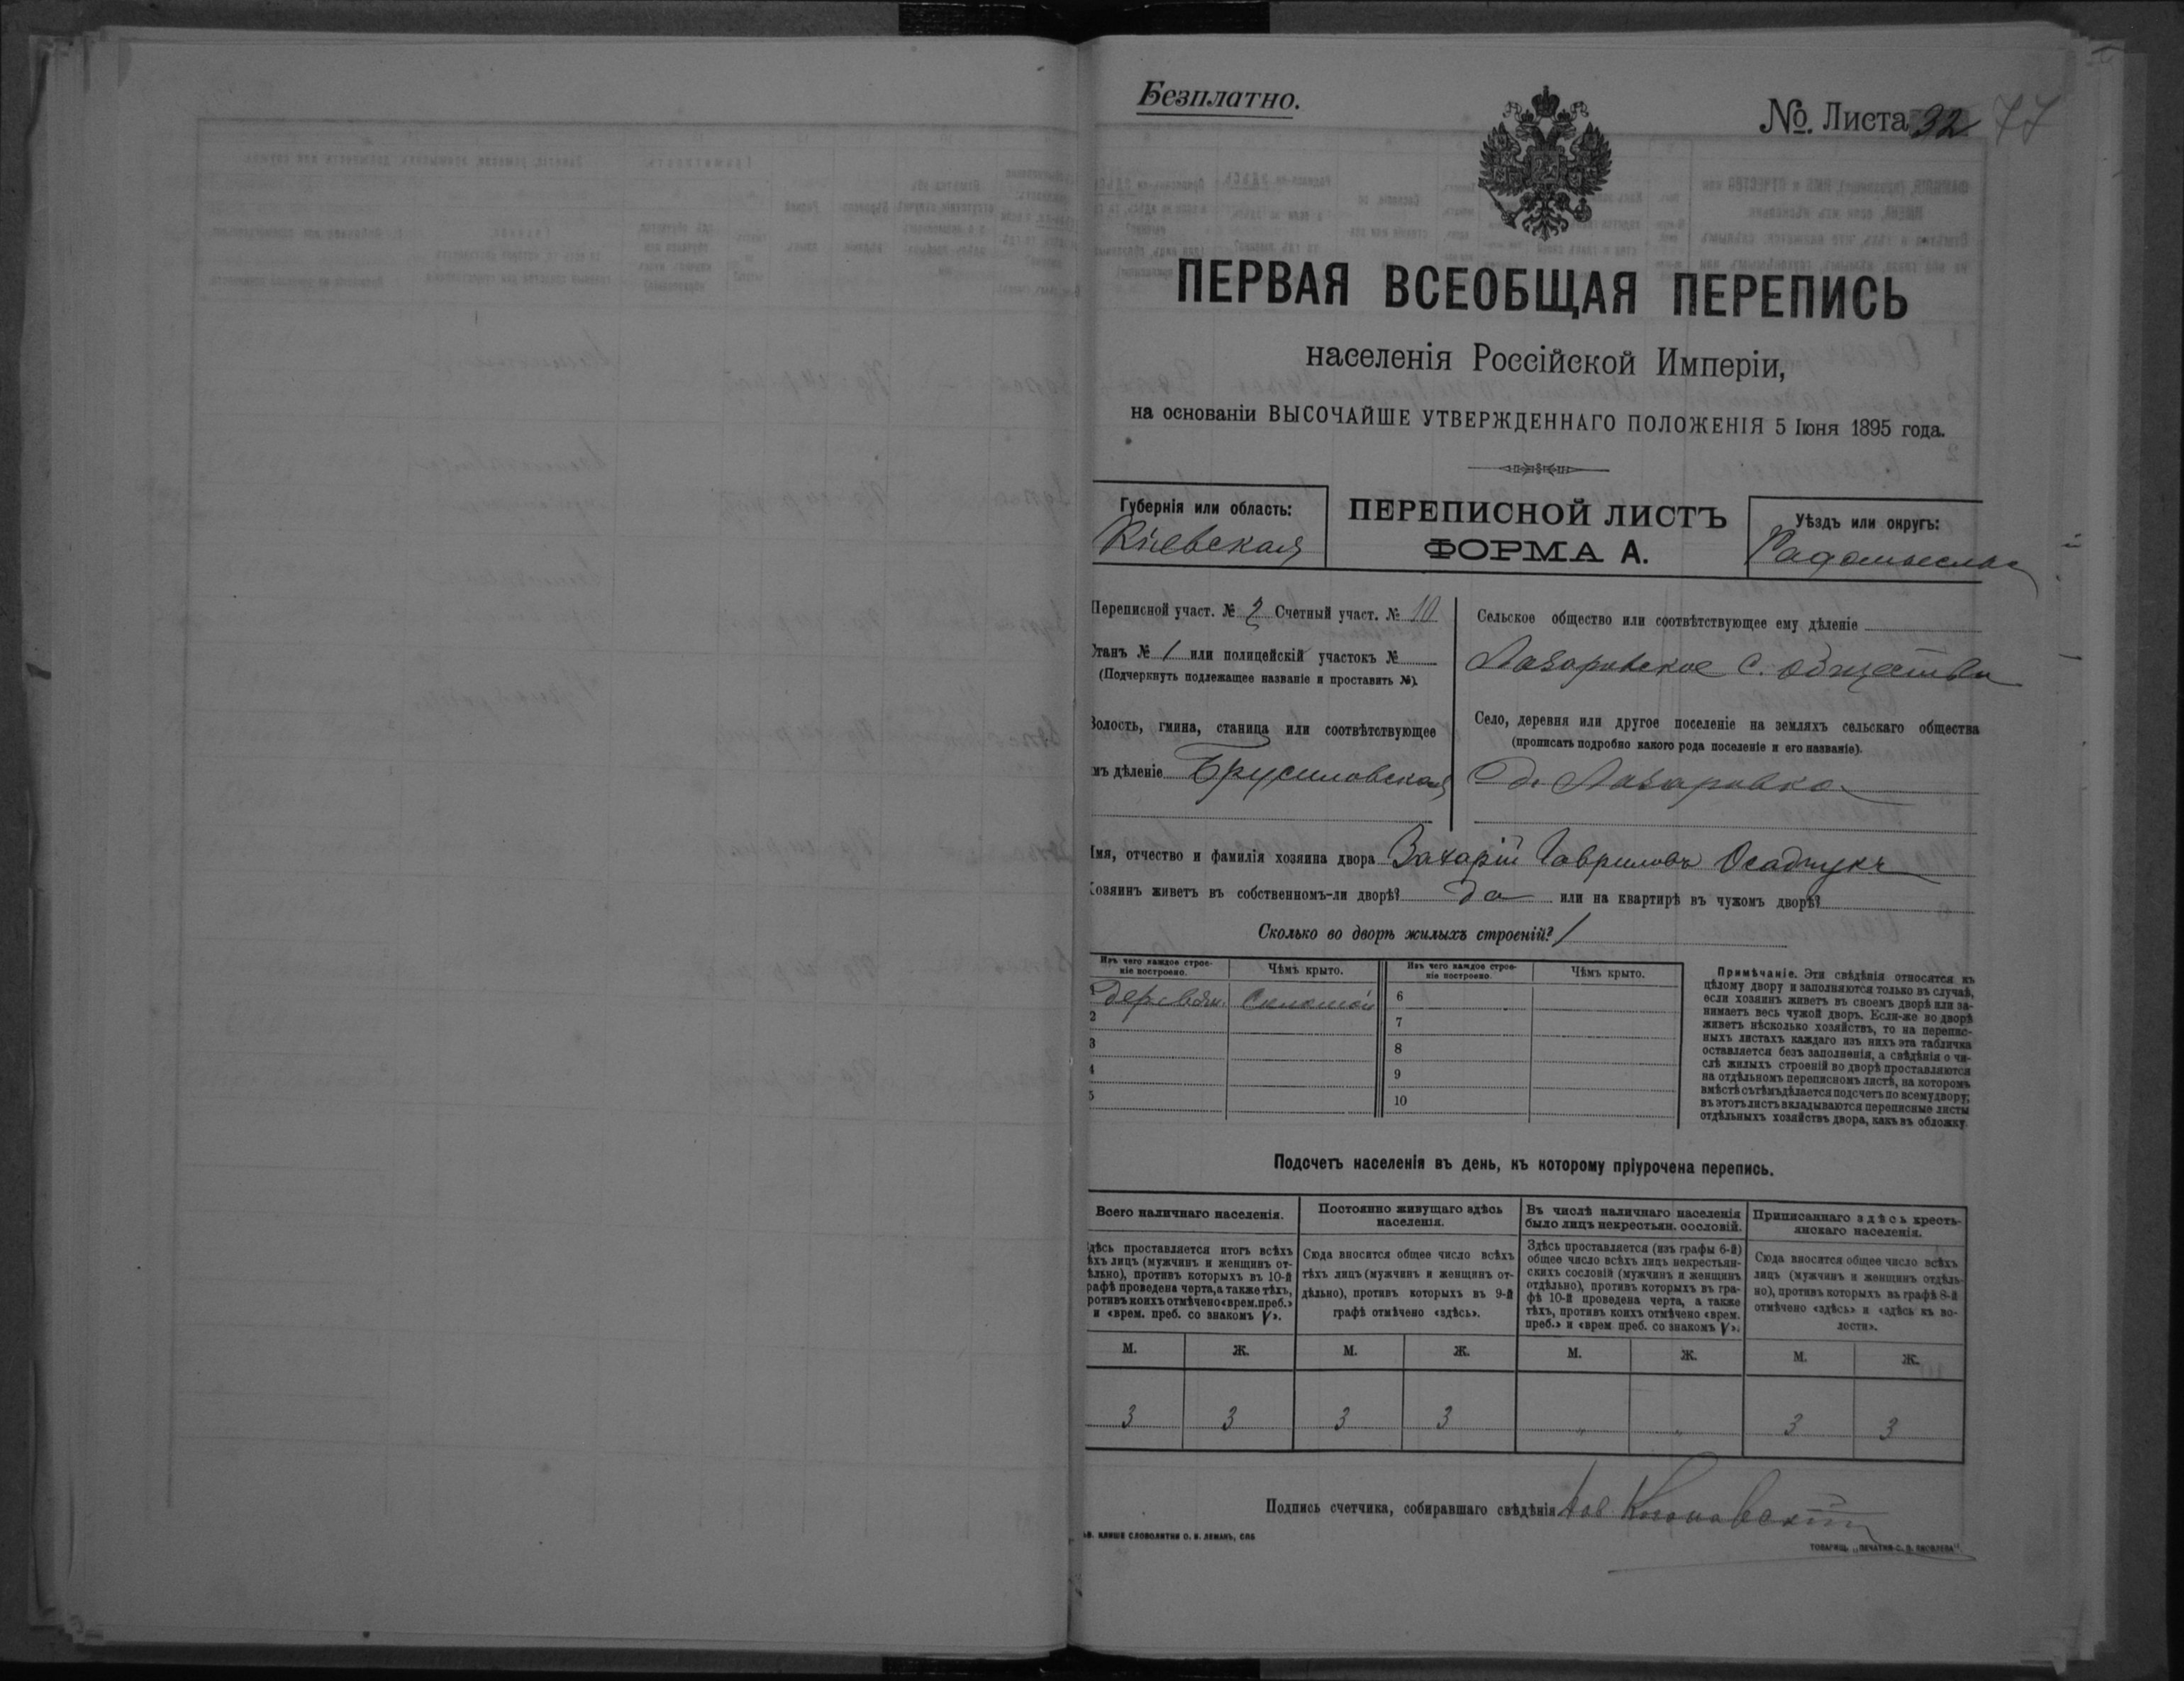 Безплатно.
№. Листа 32 77
ПЕРВАЯ ВСЕОБЩАЯ ПЕРЕПИСЬ
населенія Россійской Имперіи,
на основаніи ВЫСОЧАЙШЕ УТВЕРЖДЕННАГО ПОЛОЖЕНІЯ 5 Іюня 1895 года.
Губернія или область:
Кіевская
ПЕРЕПИСНОЙ ЛИСТЪ
ФОРМА А.
Уѣздъ или округъ:
Переписной участ. № 2 Счетный участ. № 10
Станъ № 1 или полицейскій участокъ №
(Подчеркнуть подлежащее названіе и проставить №).
Волость, гмина, станица или соотвѣтствующее
имъ дѣленіе Брусиловская
Сельское общество или соотвѣтствующее ему дѣленіе
Лазаровское с. общество
Село, деревня или другое поселеніе на земляхъ сельскаго общества
(прописать подробно какого рода поселеніе и его названіе).
д. Лазаровка
Имя, отчество и фамилія хозяина двора Захарій Гавриловъ Осадчукъ
Хозяинъ живетъ въ собственномъ-ли дворѣ? да или на квартирѣ въ чужомъ дворѣ?
Сколько во дворѣ жилыхъ строеній? 1
Изъ чего каждое строе-
ніе построено.
Чѣмъ крыто.
Изъ чего каждое строе-
ніе построено.
Чѣмъ крыто.
1 деревян. Соломой
2
3
4
5
6
7
8
9
10
Примѣчаніе. Эти свѣдѣнія относятся къ
цѣлому двору и заполняются только въ случаѣ,
если хозяинъ живетъ въ своемъ дворѣ или за-
нимаетъ весь чужой дворъ. Если-же во дворѣ
живетъ нѣсколько хозяйствъ, то на перепис-
ныхъ листахъ каждаго изъ нихъ эта табличка
оставляется безъ заполненія, а свѣдѣнія о чи-
слѣ жилыхъ строеній во дворѣ проставляются
на отдѣльномъ переписномъ листѣ, на которомъ
вмѣстѣ съ тѣмъ дѣлается подсчетъ по всему двору;
въ этотъ листъ вкладываются переписные листы
отдѣльныхъ хозяйствъ двора, какъ въ обложку.
Подсчетъ населенія въ день, къ которому пріурочена перепись.
Всего наличнаго населенія.
Здѣсь проставляется итогъ всѣхъ
тѣхъ лицъ (мужчинъ и женщинъ от-
дѣльно), противъ которыхъ въ 10-й
графѣ проведена черта, а также тѣхъ,
противъ коихъ отмѣчено «врем. преб.»
и «врем. преб. со знакомъ V».
Постоянно живущаго здѣсь
населенія.
Сюда вносится общее число всѣхъ
тѣхъ лицъ (мужчинъ и женщинъ от-
дѣльно), противъ которыхъ въ 9-й
графѣ отмѣчено «здѣсь».
Въ числѣ наличнаго населенія
было лицъ некрестьян. сословій.
Здѣсь проставляется (изъ графы 6-й)
общее число всѣхъ лицъ некрестьян-
скихъ сословій (мужчинъ и женщинъ
отдѣльно), противъ которыхъ въ гра-
фѣ 10-й проведена черта, а также
тѣхъ, противъ коихъ отмѣчено «врем.
преб.» и «врем преб. со знакомъ V».
Приписаннаго здѣсь кресть-
янскаго населенія.
Сюда вносится общее число всѣхъ
лицъ (мужчинъ и женщинъ отдѣль-
но), противъ которыхъ въ графѣ 8-й
отмѣчено «здѣсь» и «здѣсь къ во-
лости».
М. Ж. М. Ж. М. Ж. М. Ж.
3 3 3 3 „ „ 3 3
Подпись счетчика, собиравшаго свѣдѣнія
КЛИШЕ СЛОВОЛИТНИ О. И. ЛЕМАНЪ, СПБ
ТОВАРИЩ. „ПЕЧАТНЯ С. П. ЯКОВЛЕВА“.